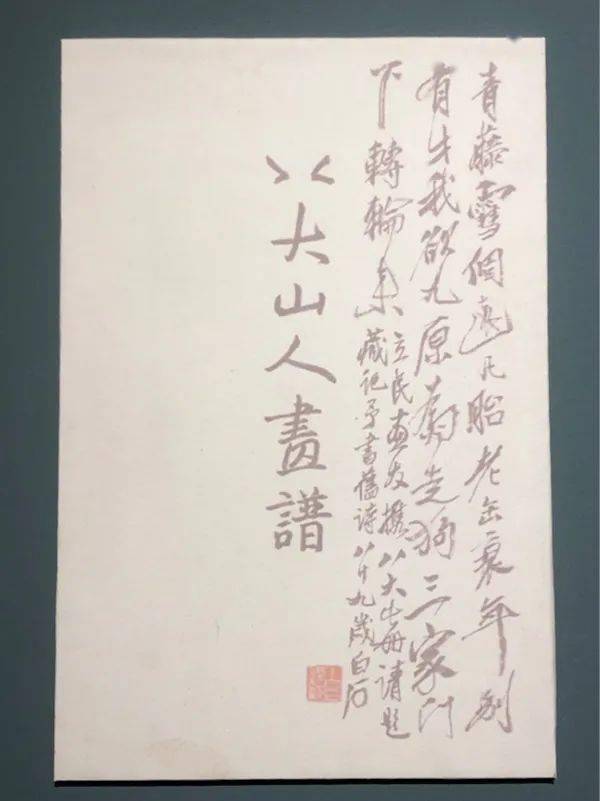 青藤雪個遠凡胎老缶衰年別
有才我欲九原為走狗三家門
下轉輪來
立民畫友攜八大山冊請題
藏記予書舊詩八十九歲白石
八大山人畫譜